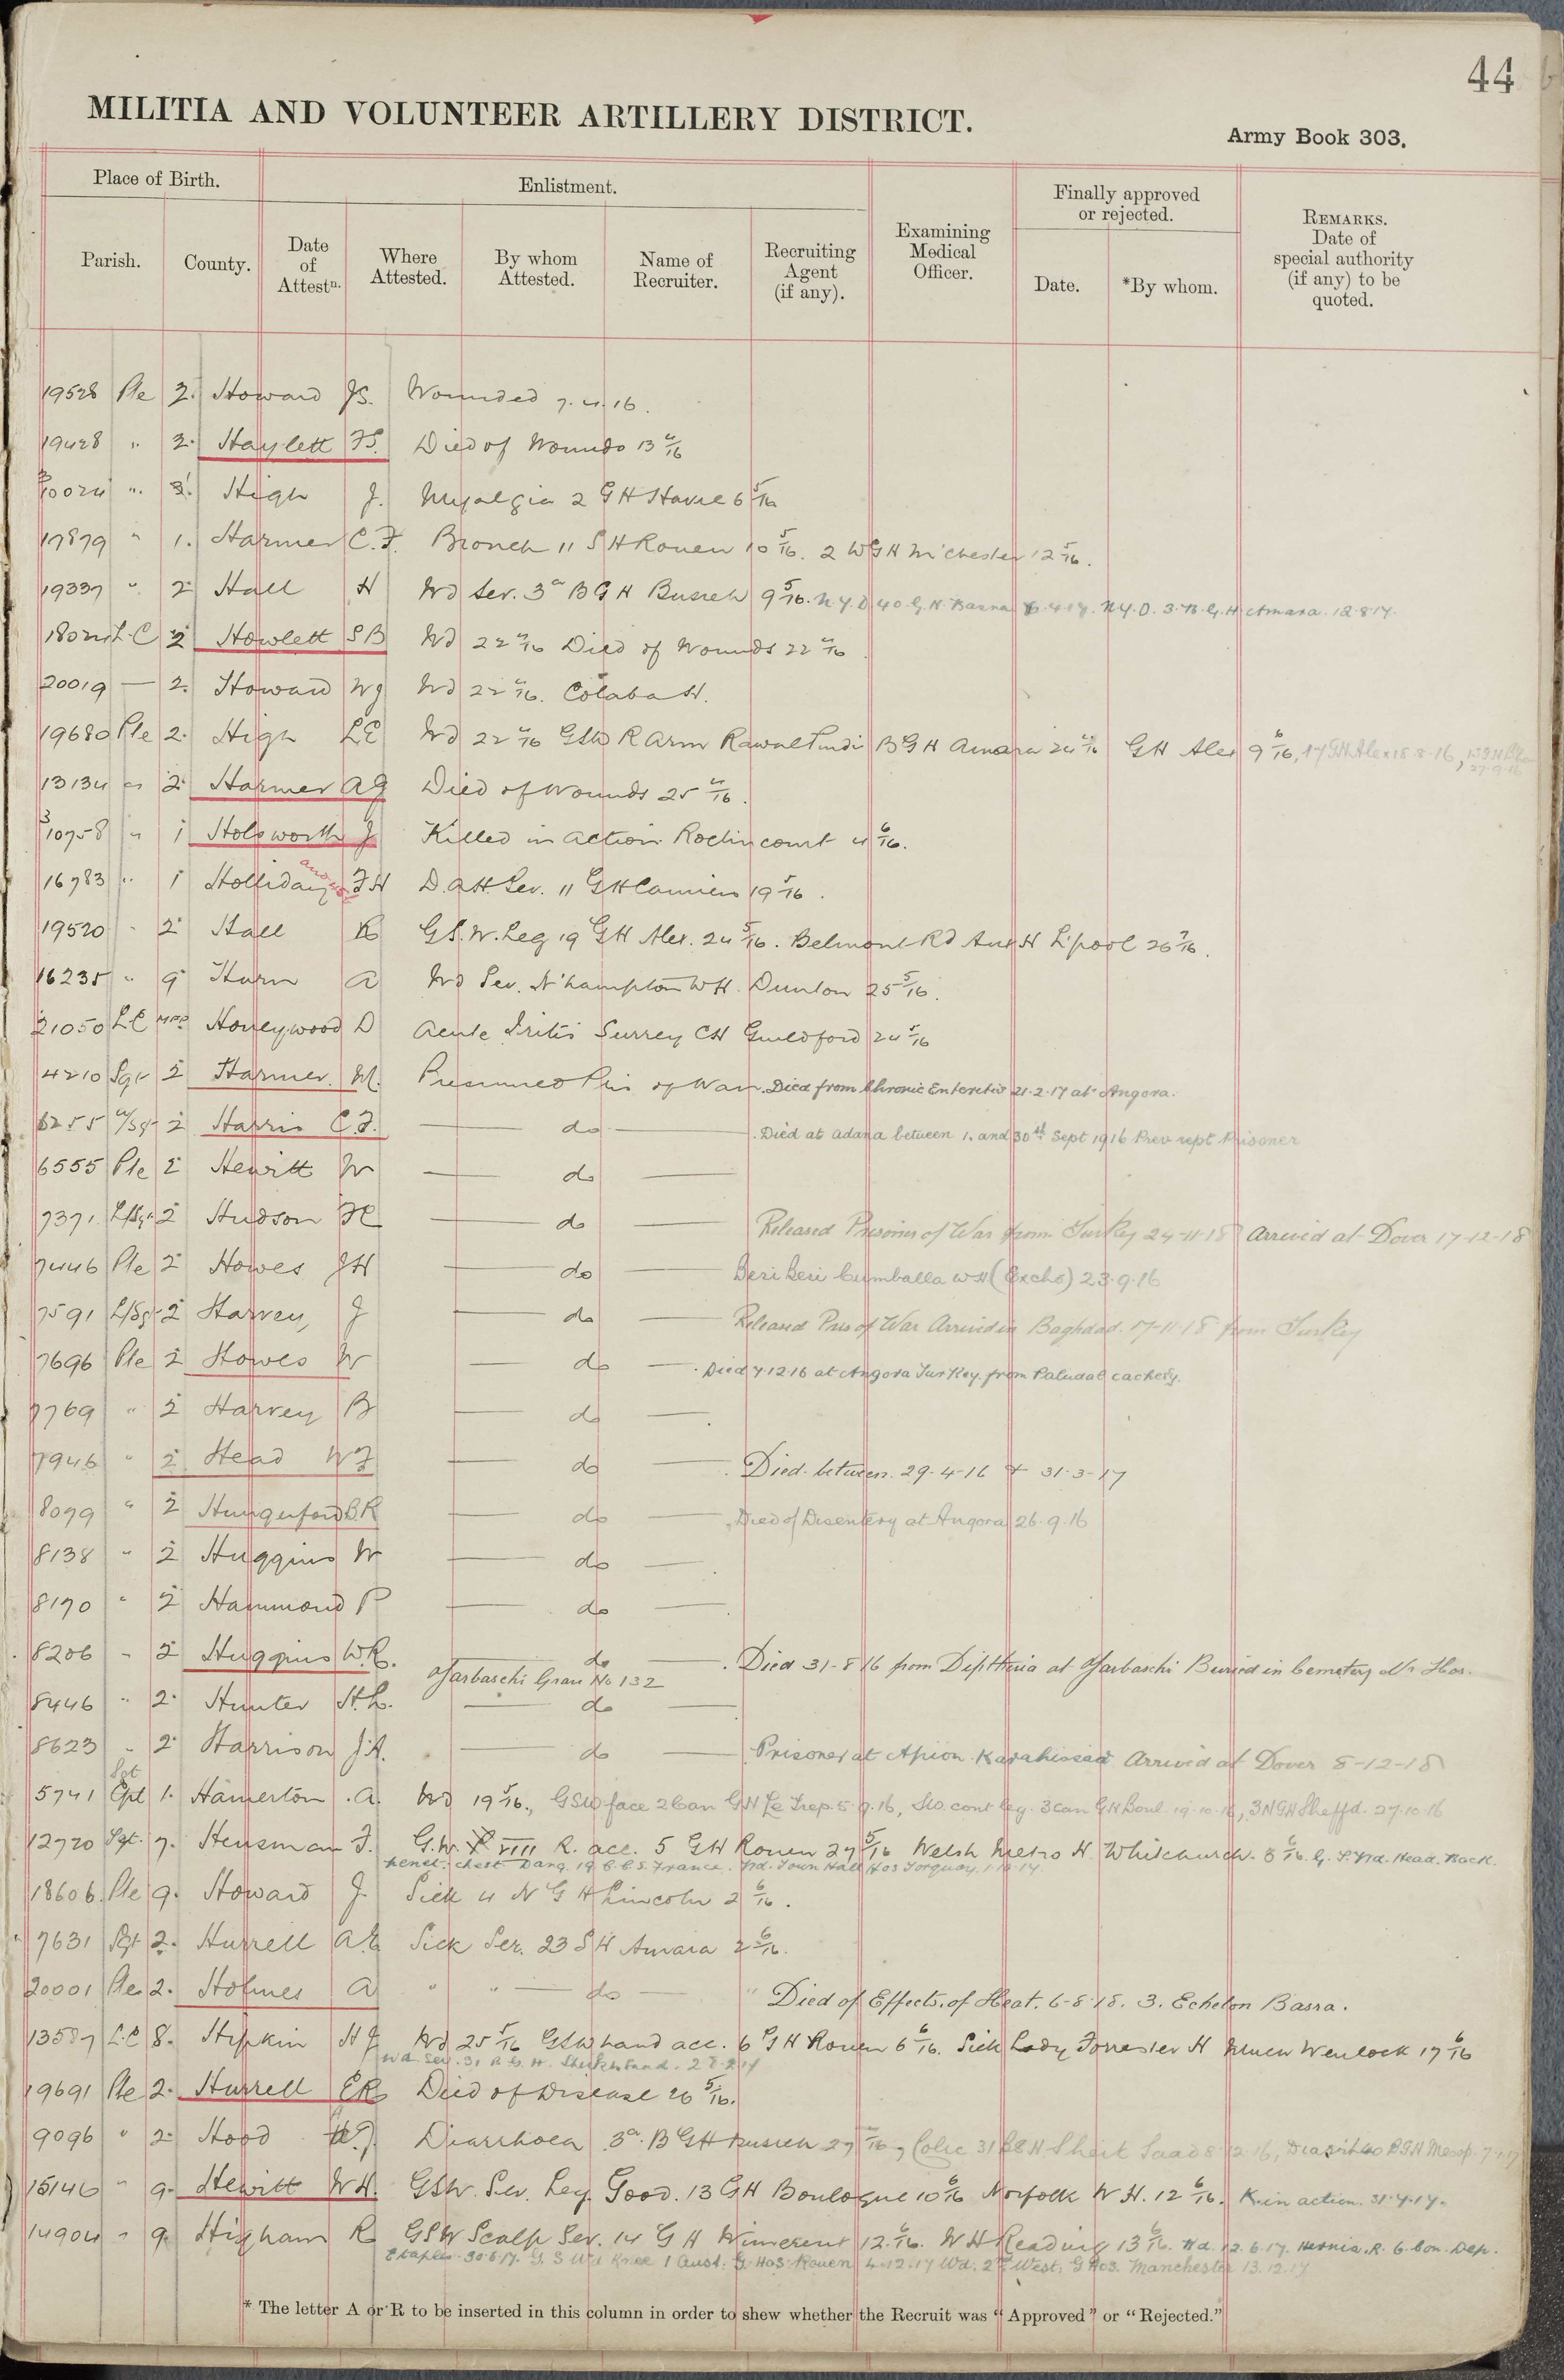 44
MILITIA AND VOLUNTEER ARTILLERY DISTRICT.
Army Book 303.
Place of Birth.
Enlistment.
Finally approved
or rejected.
Parish.
County.
Date
of
Attestn.
Where
Attested.
By whom
Attested.
Name of
Recruiter.
Recruiting
Agent
(if any).
Examining
Medical
Officer.
Date.
*By whom.
REMARKS.
Date of
special authority
(if any) to be
quoted.
19528 Pte 2. Howard J.S. Wounded 7.4.16.
19428 " 2. Haylett F.S. Died of Wounds 13 4/16
3/10024 " High J. Myalgia 2 GH Havre 6 5/16
17879 " 1. Harmer C.F. Bronch 11 SH Rouen 10 5/16. 2 WGH M'chester 12 5/16.
19337 " 2 Hall H Wd Sev. 3a BGH Busreh 9 5/16. N.Y.D 40 G.H. Basra 4.17. N.Y.D. 3.B.G.H Amara. 12.8.17.
18024 L-C 2 Howlett S B Wd 22 4/16 Died of Wounds 22 4/16
20019 — 2. Howard W J Wd 22 4/16. Colaba H.
19680 Pte 2. High L E Wd 22 4/16 GSW R Arm Rawal Pindi BGH Amara 24 4/16 GH Alex 9 6/16, 17 GH Alex 18.8.16,
27.9.16
13134 " 2 Harmer A G Died of Wounds 25 4/16.
3/10758 " 1 Holsworth J Killed in action Roclincourt 4 6/16.
16783 " 1 Holliday F H D.A.H. Sev. 11 GH Camiers 19 5/16.
19520 " 2 Hall R G.S.W. Leg 19 GH Alex. 24 5/16. Belmont Rd Aux H L'pool 26 7/16.
16235 " 9 Hurn A Wd Sev. N'hampton WH. Duston 25 5/16.
21050 L-C MFP Honeywood D Acute Iritis Surrey CH Guildford 24 5/16
4210 Sgt 2 Harmer. W. Presumed Pris of War. Died from Chronic Enteritis 21.2.17 at Angora.
8255 2 Harris C.F. — do — . Died at Adana between 1. and 30th Sept 1916 Prev rept Prisoner
6555 Pte 2 Hewitt W — do —
7371. L/Sgt 2 Hudson — do — Released Prisoner of War from Turkey 24-11-18 Arrived at Dover 17-12-18
7446 Pte 2 Howes J H — do — Beri Beri Cumballa WH (Exchd) 23.9.16
7591 L/Sgt 2 Harvey, J — do — Released Pris of War Arrived in Baghdad. 17-11-18 from Turkey
7696 Pte 2 Howes W — do — . Died 7.12.16 at Angora Turkey. from Paludal cachexy.
7769 " 2 Harvey B — do — .
7946 " 2 Head W F — do — . Died. between. 29-4-16 + 31-3-17
8079 " 2 Hungerford B.R — do — . Died of Disentery at Angora 26.9.16
8138 " 2 Huggins W — do — .
8170 " 2 Hammond P — do —
8206 " 2 Huggins W.R. — do — . Died 31-8-16 from Diphtheria at Yarbaschi Buried in Cemetery Nr Hos.
Yarbaschi Grave No 132
8446 " 2. Hunter H.L. — do —
8623 " 2. Harrison J.A. — do — Prisoner at Afion Karahissar Arrived at Dover 8-12-18
Sgt
5741 Cpl 1. Hamerton . A. Wd 19 5/16., GSW face 2 Can GH Le Trep. 5.9.16, SW. cont leg. 3 Can GH Boul. 19.10.16, 3NGH Sheffd. 27.10.16
12720 Sgt. 7. Hensman F. G.W. VIII R. acc. 5 GH Rouen 27 5/16 Welsh Metro H. Whitchurch. 8 6/16. G.S.Wd. Head. Back.
penet. chest Dang. 19 C.C.S. France. Wd. Town Hall Hos Torquay. 1.10.17.
18606. Pte 9. Howard J. Sick 4 N G H Lincoln 2 6/16.
7631 Sgt 2. Hurrell A.E Sick Sev. 23 S H Amara 2 6/16.
20001 Pte 2. Holmes A " " — do — " Died of Effects. of Heat. 6-8-18. 3. Echelon Basra.
13587 L-C 8. Hipkin H J Wd 25 5/16 GSW hand acc. 6 GH Rouen 6 6/16. Sick Lady Forrester H Much Wenlock 17 6/16
19691 Pte 2. Hurrell E R Died of Disease 26 5/16.
9096 " 2. Hood Diarrhoea 3a. BGH Busreh 27 , Colic 31 BSH Sheik Saad 8.12.16,
15146 " 9. Hewitt W H. GSW. Sev. Leg. Good. 13 GH Boulogne 10 6/16 Norfolk W H. 12 6/16. K. in action. 31.7.17.
14904 " 9. Higham R GSW Scalp Sev. 14 G H Wimereux 12 6/16. W H Reading 13 6/16. Wd. 12.6.17. Hernia. R. 6. Con. Dep.
Etaples. 30.6.17. G S Wd Knee 1 Aust. G. Hos. Rouen 4.12.17 Wd. 2nd West. G Hos. Manchester 13.12.17
* The letter A or R to be inserted in this column in order to shew whether the Recruit was "Approved" or "Rejected."